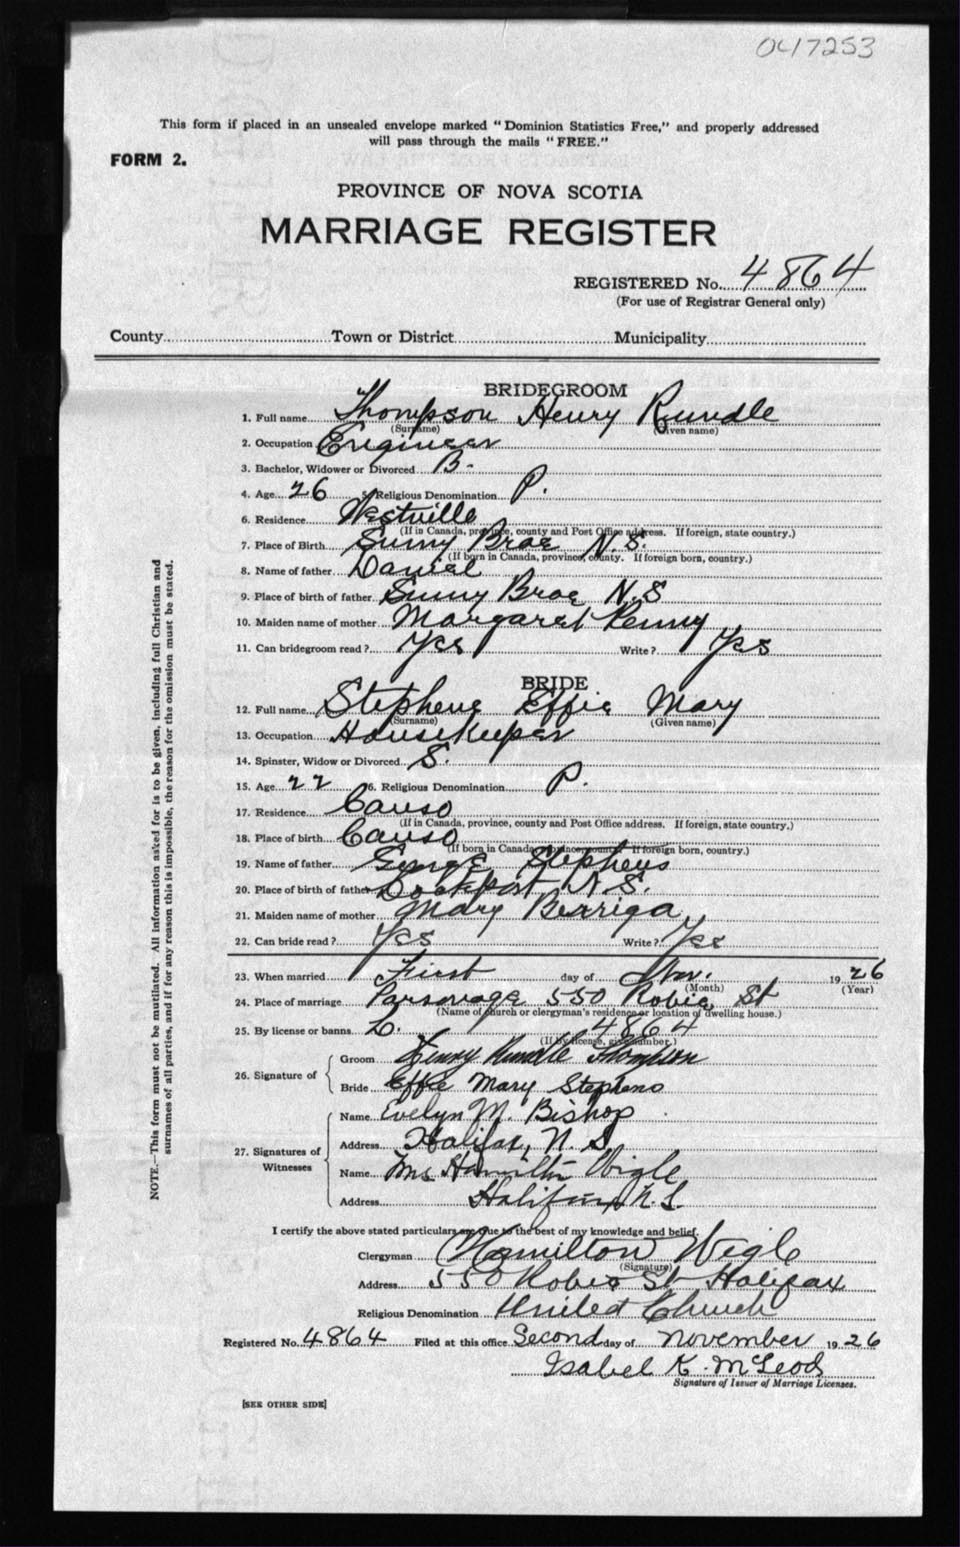 0417253
This form if placed in an unsealed envelope marked "Dominion Statistics Free," and properly addressed
will pass through the mails "FREE."
FORM 2.
PROVINCE OF NOVA SCOTIA
MARRIAGE REGISTER
REGISTERED No. 4864
(For use of Registrar General only)
County Town or District Municipality
BRIDEGROOM
1. Full name Thompson Henry Rundle
(Surname) (Given name)
2. Occupation Engineer
3. Bachelor, Widower or Divorced B.
4. Age 26 5. Religious Denomination P.
6. Residence Westville
(If in Canada, province, county and Post Office address. If foreign, state country.)
7. Place of Birth Sunny Brae N.S.
(If born in Canada, province, county. If foreign born, country.)
8. Name of father Daniel
9. Place of birth of father Sunny Brae N.S
10. Maiden name of mother Margaret
11. Can bridegroom read? Yes Write? Yes
BRIDE
12. Full name Stephens Effie Mary
(Surname) (Given name)
13. Occupation Housekeeper
14. Spinster, Widow or Divorced S.
15. Age 22 16. Religious Denomination P.
17. Residence Canso
(If in Canada, province, county and Post Office address. If foreign, state country.)
18. Place of birth Canso
(If born in Canada, province, county. If foreign born, country.)
19. Name of father George Stephens
20. Place of birth of father N.S.
21. Maiden name of mother Mary
22. Can bride read? Yes Write? Yes
23. When married First day of Nov. 1926
(Month) (Year)
24. Place of marriage Parsonage 550 Robie St
(Name of church or clergyman's residence or location of dwelling house.)
25. By license or banns L. 4864
(If by license, give number.)
26. Signature of
Groom Henry Rundle Thompson
Bride Effie Mary Stephens
27. Signatures of Witnesses
Name Evelyn M. Bishop
Address Halifax, N.S.
Name Mrs Hamilton Wigle
Address Halifax N.S.
I certify the above stated particulars are true to the best of my knowledge and belief.
Clergyman Hamilton Wigle
(Signature)
Address 550 Robie St Halifax
Religious Denomination United Church
Registered No. 4864 Filed at this office Second day of November 1926
Isabel K. McLeod
Signature of Issuer of Marriage Licenses.
[SEE OTHER SIDE]
NOTE.—This form must not be mutilated. All information asked for is to be given, including full Christian and
surnames of all parties, and if for any reason this is impossible, the reason for the omission must be stated.